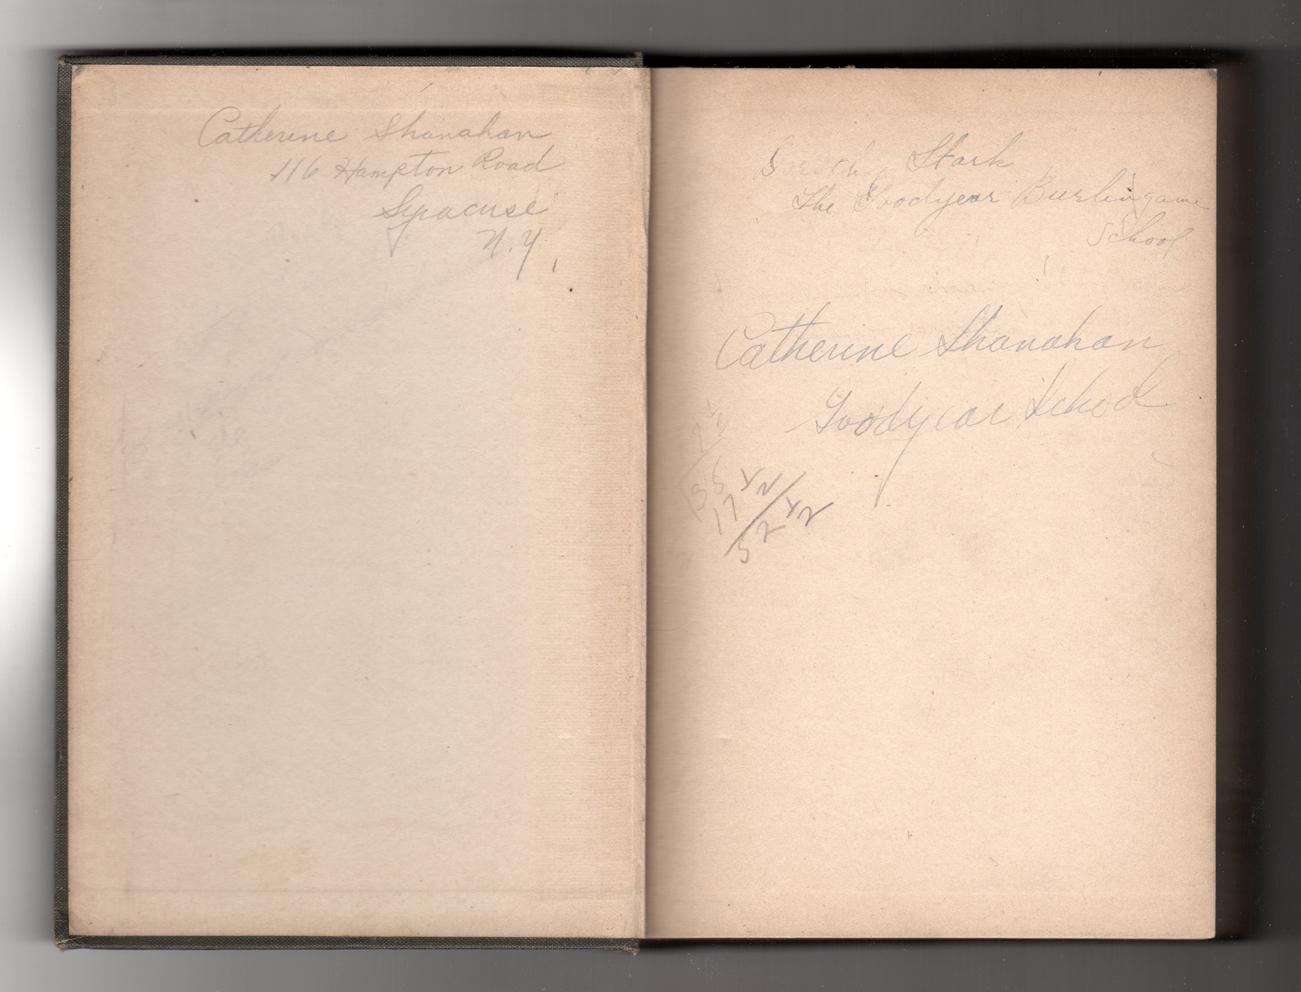 Catherine Shanahan
116 Hampton Road
Syracuse
N.Y.
Stark
The Goodyear Burlingame
School
Catherine Shanahan
Goodyear School